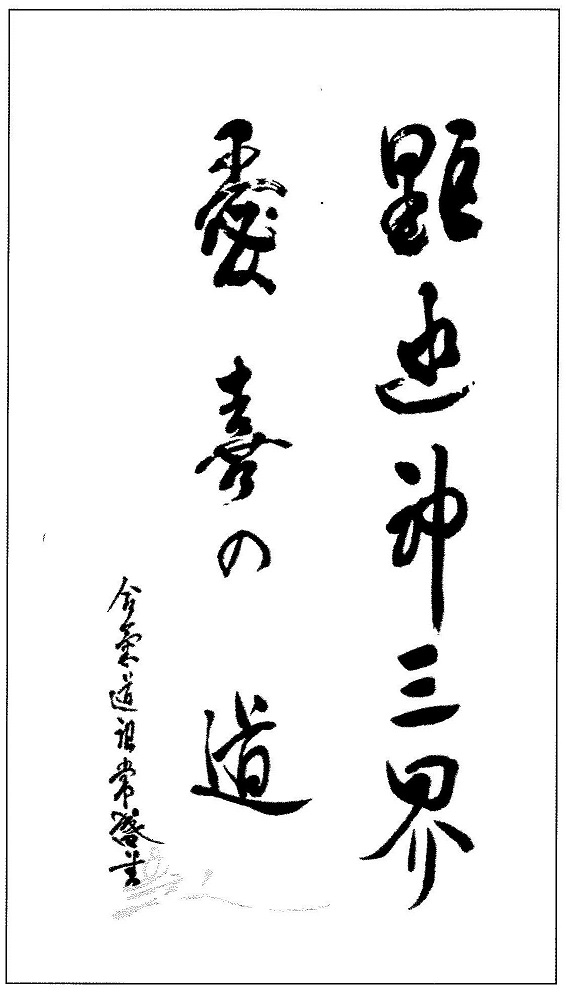 顕幽神三界
愛喜の道
合氣道祖常盛書